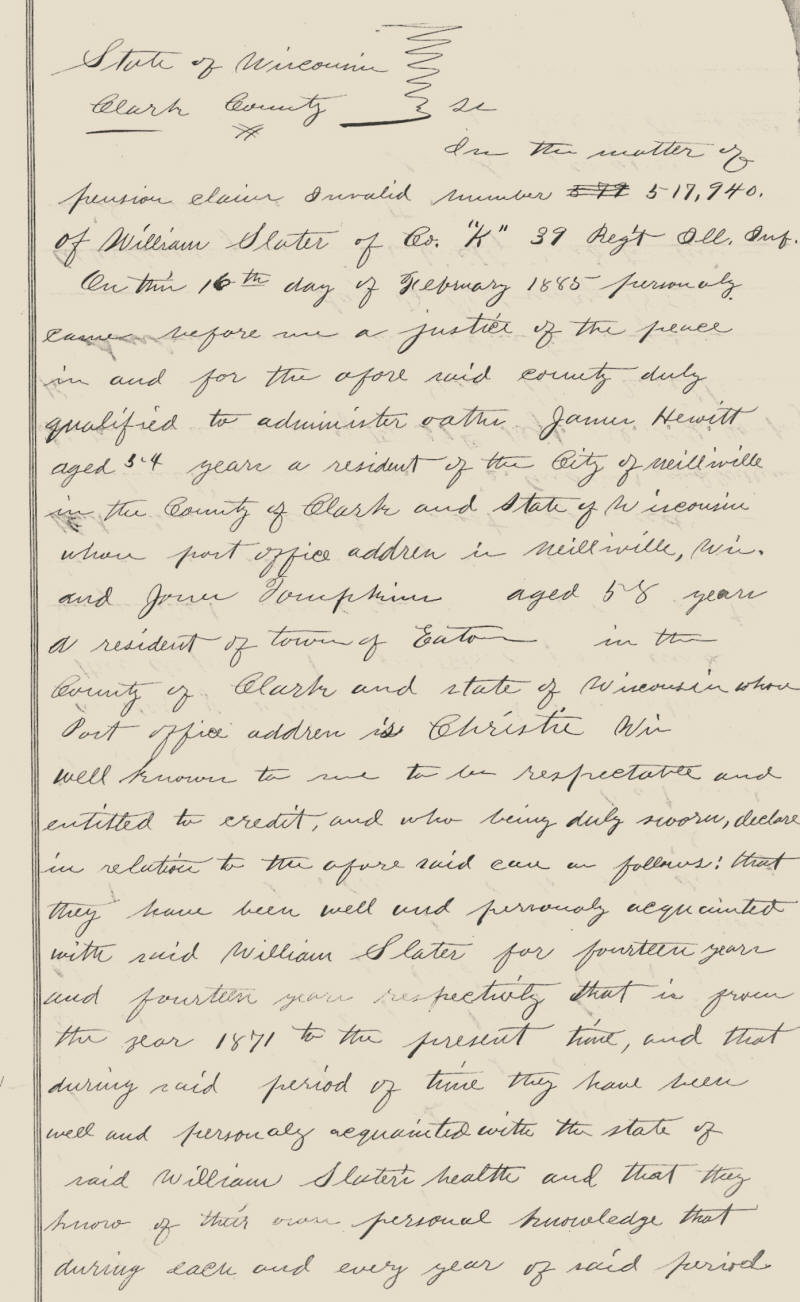 State of Wisconsin
Clark County ss
In the matter of
pension claim Invalid number 579 517,940.
of William Slater of Co. "K" 39 Reg't Ill. Inf.
On this 16th day of February 1885 personaly
came before me a justice of the peace
in and for the afore said county duly
qualified to administer oaths James Hewitt
aged 54 years a resident of the City of Neillsville
in the County of Clark and State of Wisconsin
whose post office address is Neillsville, Wis.
and Jones Tompkins aged 58 years
a resident of town of Eaton in the
County of Clark and state of Wisconsin whose
Post office address is Christie Wis
well known to me to be respectable and
entitled to credit, and who being duly sworn, declare
in relation to the afore said case as follows: that
they have been well and personaly acquainted
with said William Slater for fourteen years
and fourteen years respectivly that is from
the year 1871 to the present time, and that
during said period of time they have been
well and personaly acquainted with the state of
said William Slater's health and that they
know of their own personal knowledge that
during each and every year of said period